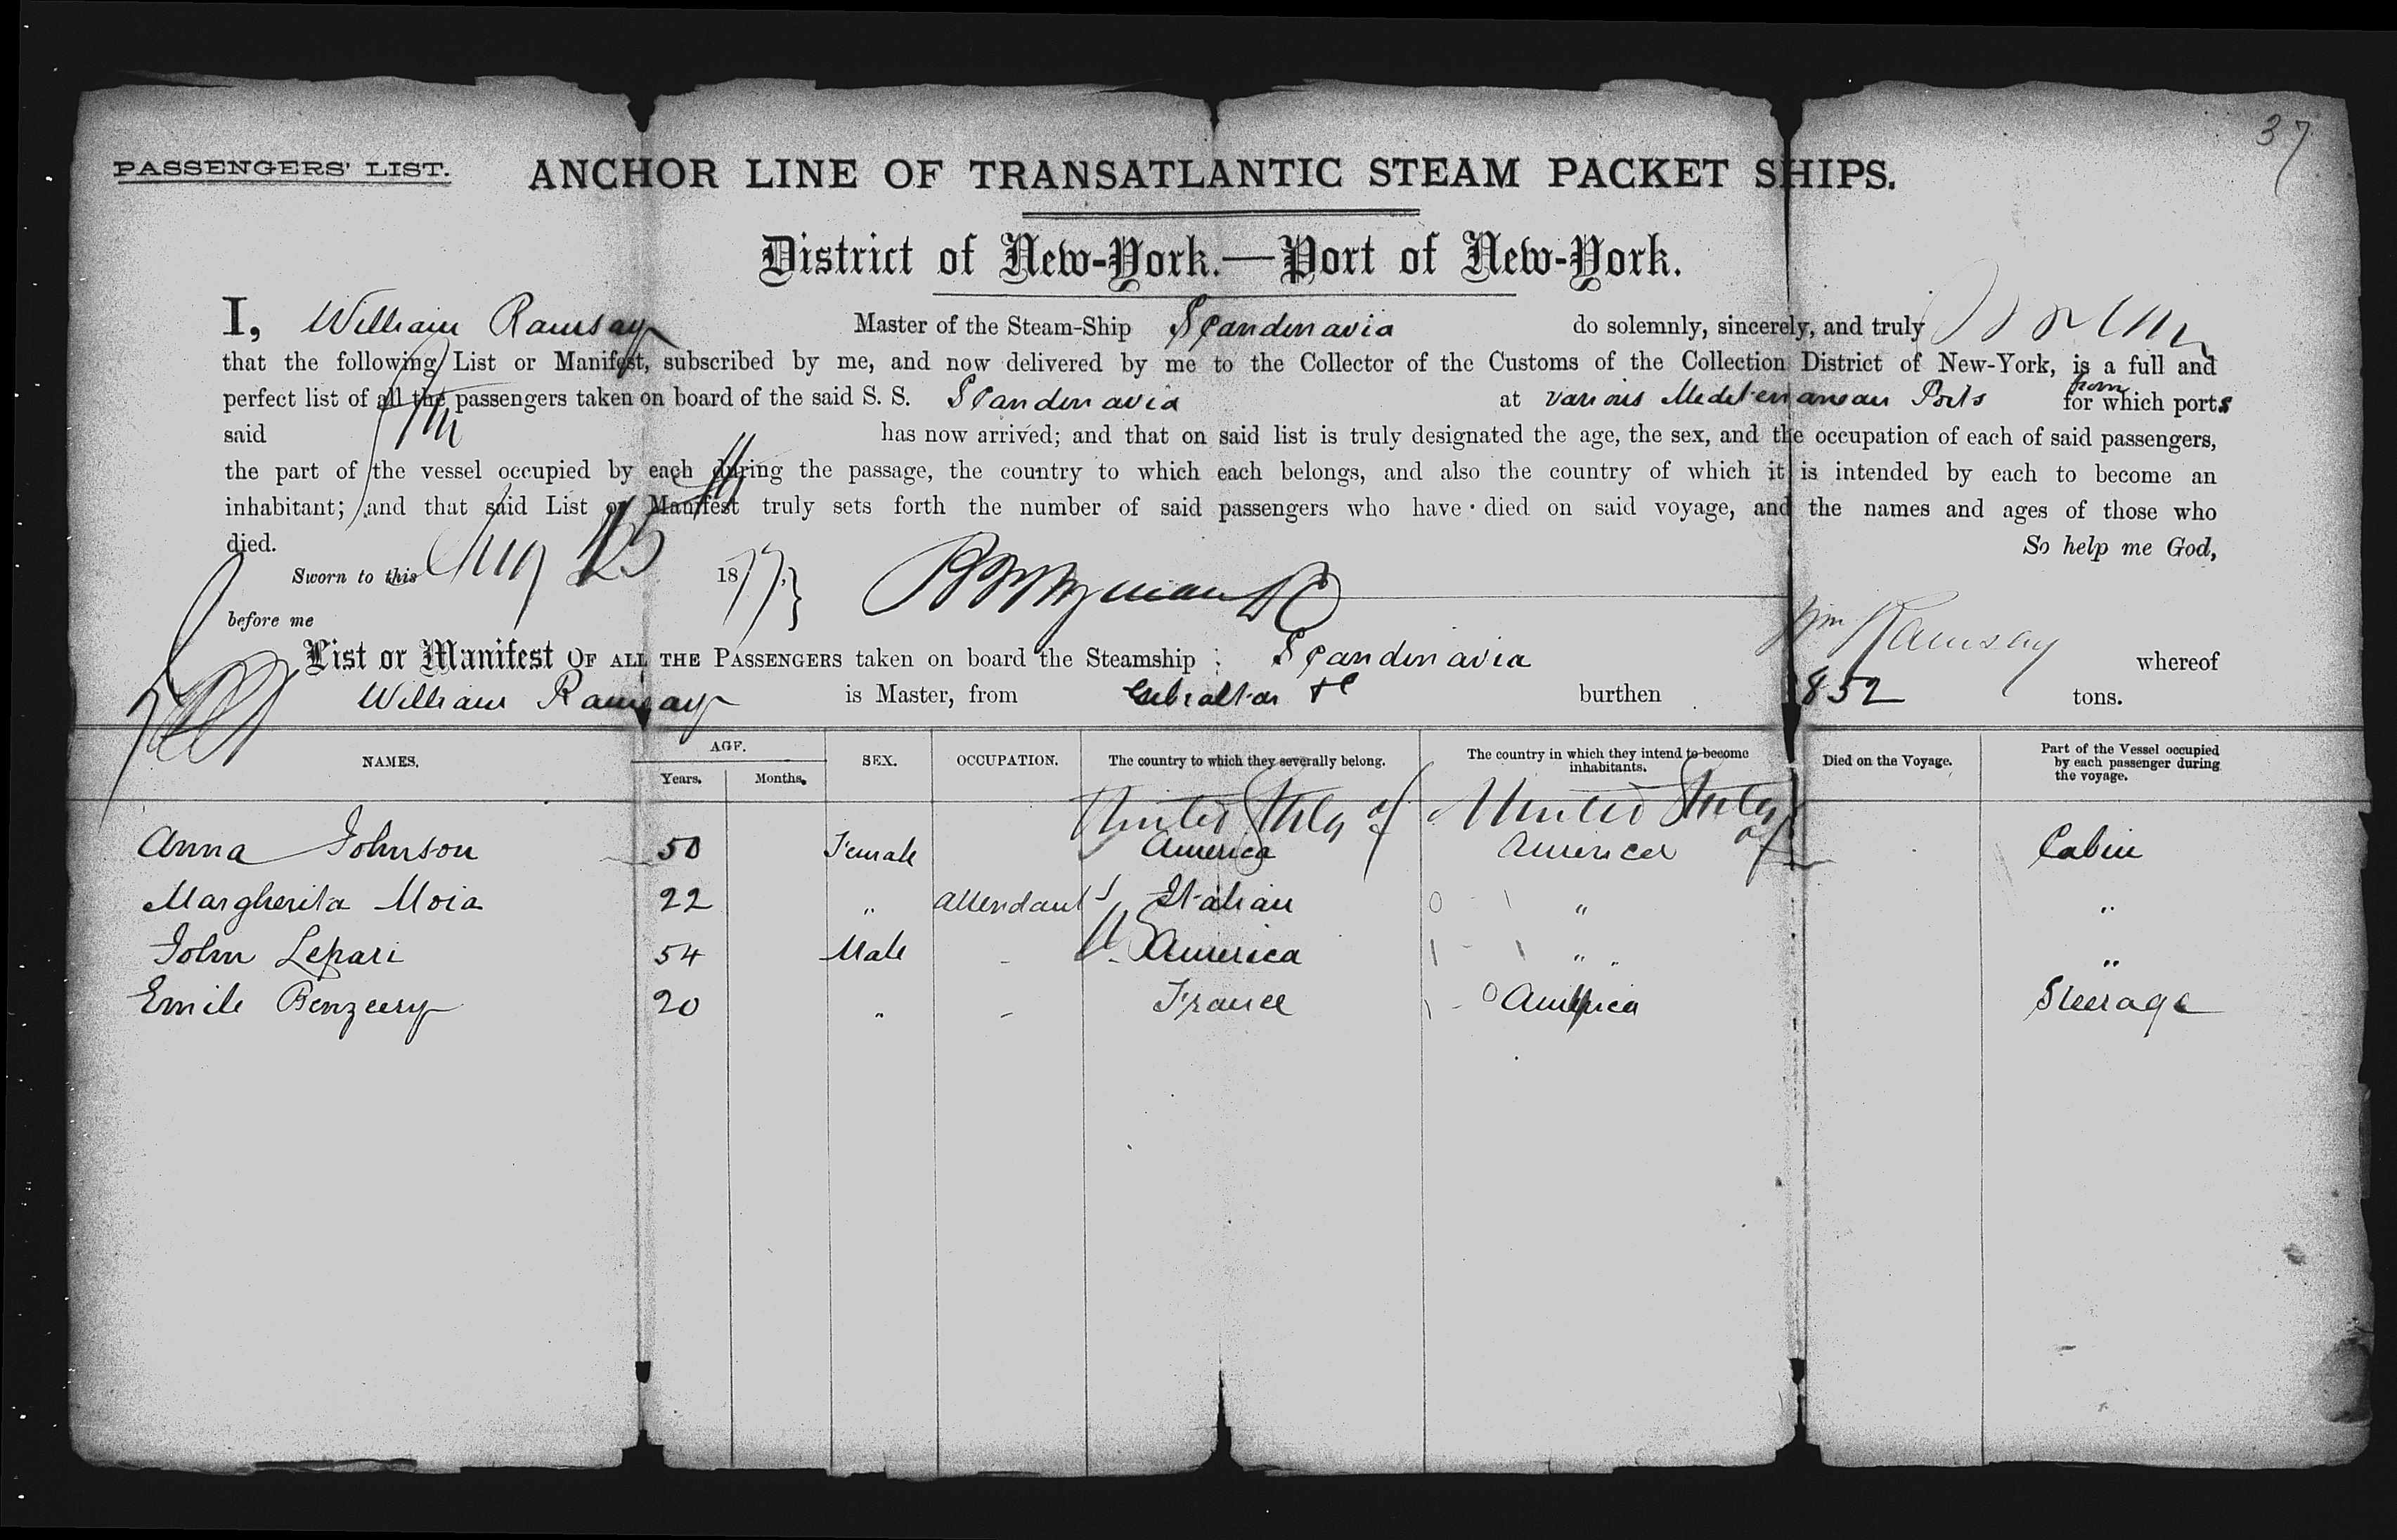 37
PASSENGERS' LIST. ANCHOR LINE OF TRANSATLANTIC STEAM PACKET SHIPS.
District of New-York.—Port of New-York.
I, William Ramsay Master of the Steam-Ship Scandinavia do solemnly, sincerely, and truly
that the following List or Manifest, subscribed by me, and now delivered by me to the Collector of the Customs of the Collection District of New-York, is a full and
perfect list of all the passengers taken on board of the said S. S. Scandinavia at various Mediterranean Ports from for which ports
said has now arrived; and that on said list is truly designated the age, the sex, and the occupation of each of said passengers,
the part of the vessel occupied by each during the passage, the country to which each belongs, and also the country of which it is intended by each to become an
inhabitant; and that said List or Manifest truly sets forth the number of said passengers who have died on said voyage, and the names and ages of those who
died. So help me God,
Sworn to this Aug 15 1877,
before me Wm Ramsay
List or Manifest OF ALL THE PASSENGERS taken on board the Steamship Scandinavia whereof
William Ramsay is Master, from Gibraltar &c burthen 852 tons.
NAMES. AGE. Years. Months. SEX. OCCUPATION. The country to which they severally belong. The country in which they intend to become inhabitants. Died on the Voyage. Part of the Vessel occupied by each passenger during the voyage.
United States of United States of
Anna Johnson 50 Female America America Cabin
Margherita Moia 22 " attendant Italian 0 - 1 " "
John Lepari 54 Male - U. S. America 1 - 1 " "
Emile Benzeery 20 " - France 1 - 0 America Steerage